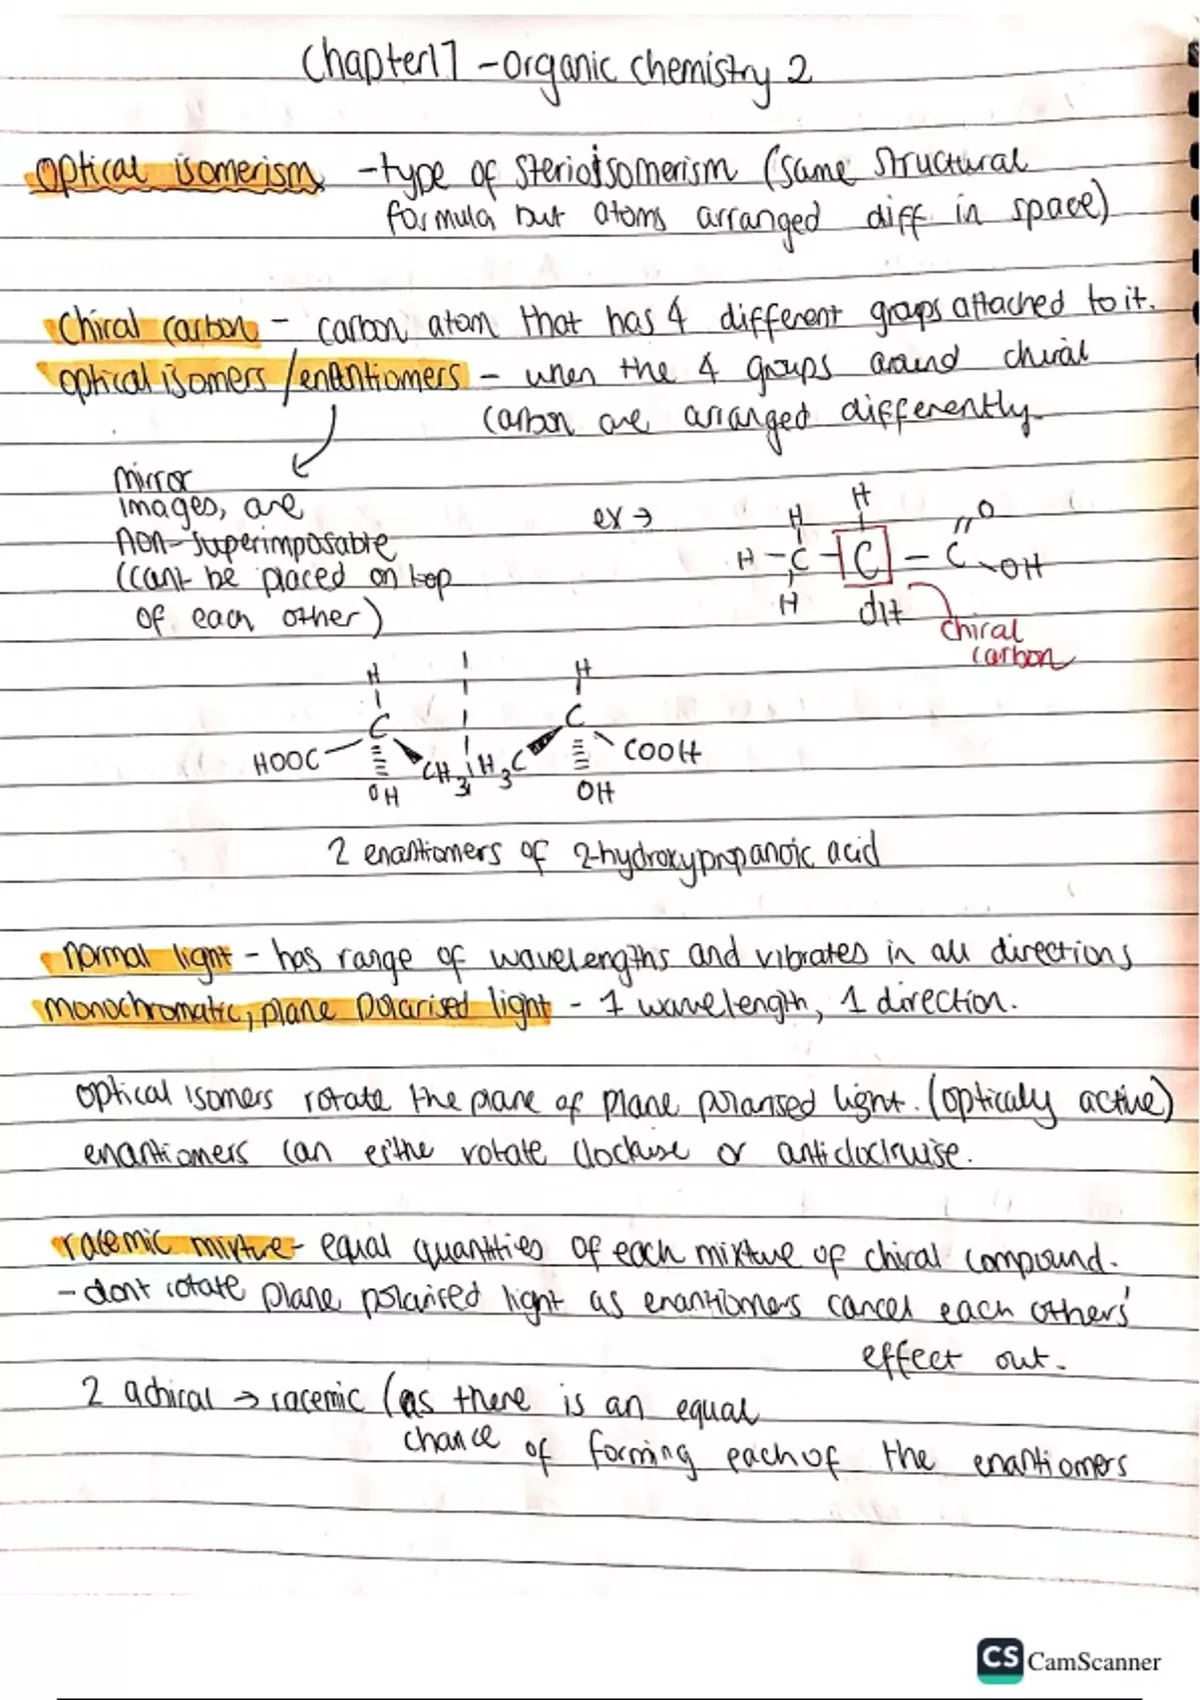 Chapter17 - Organic chemistry 2
Optical isomerism - type of sterioisomerism (same structural
formula but atoms arranged diff in space)
Chiral carbon - carbon atom that has 4 different groups attached to it.
optical isomers / enantiomers - when the 4 groups around chiral
carbon are arranged differently.
mirror
images, are
non-superimposable
(can't be placed on top
of each other)
ex →
H H O
H - C - C - C
OH
H OH
Chiral
carbon
H H
C C
HOOC CH3 H3C COOH
OH OH
2 enantiomers of 2-hydroxypropanoic acid
normal light - has range of wavelengths and vibrates in all directions
monochromatic, plane polarised light - 1 wavelength, 1 direction.
optical isomers rotate the plane of plane polarised light. (optically active)
enantiomers can eithe rotate clockwise or anticlockwise.
racemic mixture - equal quantities of each mixture of chiral compound.
- dont rotate plane polarised light as enantiomers cancel each others'
effect out.
2 achiral → racemic (as there is an equal
chance of forming each of the enantiomers
CS CamScanner